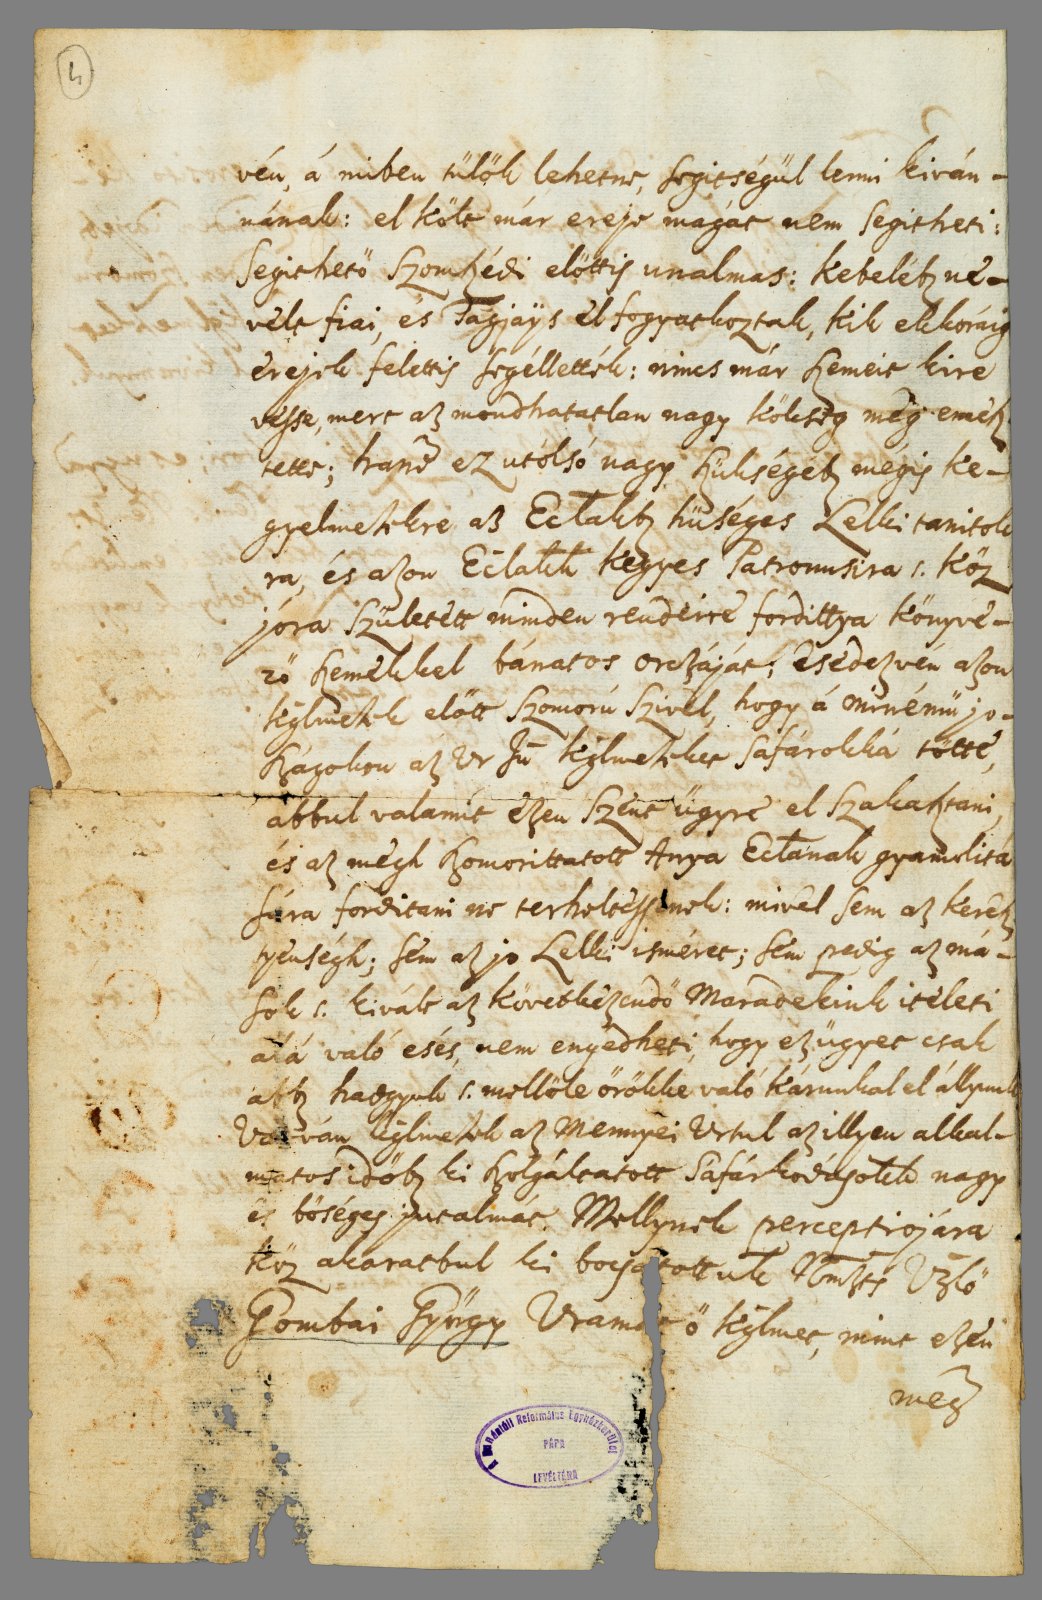 4
vén, á miben tülök lehetne, segitségül lenni kiván-
nának: el költ már ereje magát nem segitheti:
Segithető szomszédi előttis unalmas: kebelébẽ ne-
velt fiai, és Tagjaÿs el fogyatkoztak, kik ekkoráig
erejek felettis segéllették: nincs már szemeit kire
vesse, mert az mondhatatlan nagy költség meg emész
tette; hanẽ ez utólsó nagy szükségébẽ mégis Ke-
gyelmetekre az Eclákbẽ hűséges Lelki tanitok
ra, és azon Eclákk kegyes Patronusira s. köz
jóra született minden rendeire fordittya könyve-
ző szemekkel bánatos orczáját; esedezvén azon
Kglmetek előtt szomorú szivel, hogy á minémű jo-
szágokon az Ur Jũ kglmeteket sáfárokká tötte,
abbul valamit ezen szent ügyre el szakasztani,
és az megh szomorittatott Anya Eclának gyamolitá
sára forditani ne terheltessenek: mivel sem az keresz
tyénségh; sem az jo Lelki isméret; sem pedig az má-
sok s. kivált az következendő Maradekink itéleti
alá való esés, nem engedheti, hogy ez ügyet csak
abbẽ hadgyuk s. mellőle örökke való kárunkal el állyunk
Várván kglmetek az Mennyei Urtul az illyen alkal-
matos időbẽ ki szolgáltatott Sáfárkodásotok nagy
és bőséges jutalmát. Mellynek perceptiojára
köz akaratbul ki bocsátottuk Nemztes Vzlő
Gombai György Uramat ő kglmet, mint ezen
meg
A Dunántúli Református Egyházkerület
PÁPA
LEVÉLTÁRA